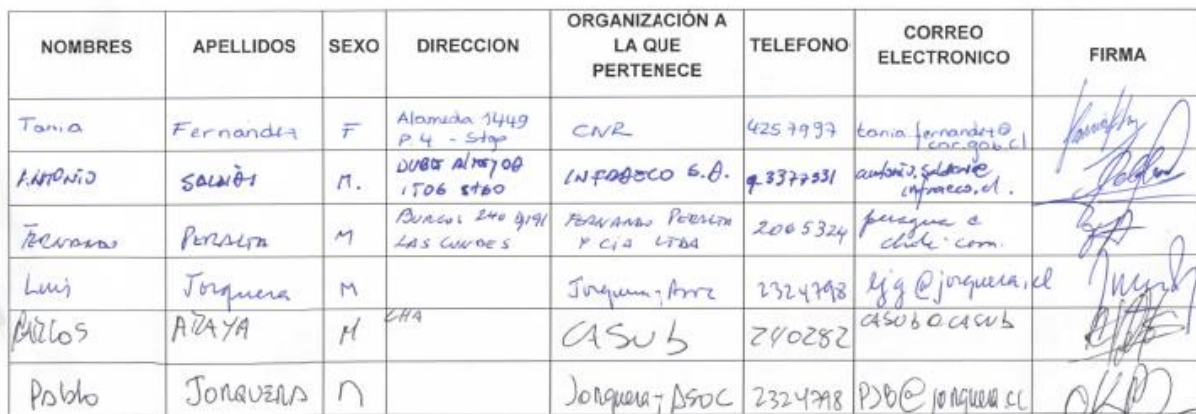 NOMBRES APELLIDOS SEXO DIRECCION ORGANIZACIÓN A LA QUE PERTENECE TELEFONO CORREO ELECTRONICO FIRMA
Tania Fernandez F Alameda 1449 P.4 - Stgo CNR 4257997 tania.fernandez@cnr.gob.cl
Antonio M. 1706 Stgo S.A.
Fernando Peralta M Burgos 240 LAS CONDES FERNANDO PERALTA Y CIA LTDA 2065324
Luis Jorquera M Jorquera y 2324798 ljg@jorquera.cl
Carlos ARAYA M CHA CASUB 240282 CASUB@CASUB
Pablo JORQUERA M Jorquera y ASOC 2324798 PJB@jorquera.cl